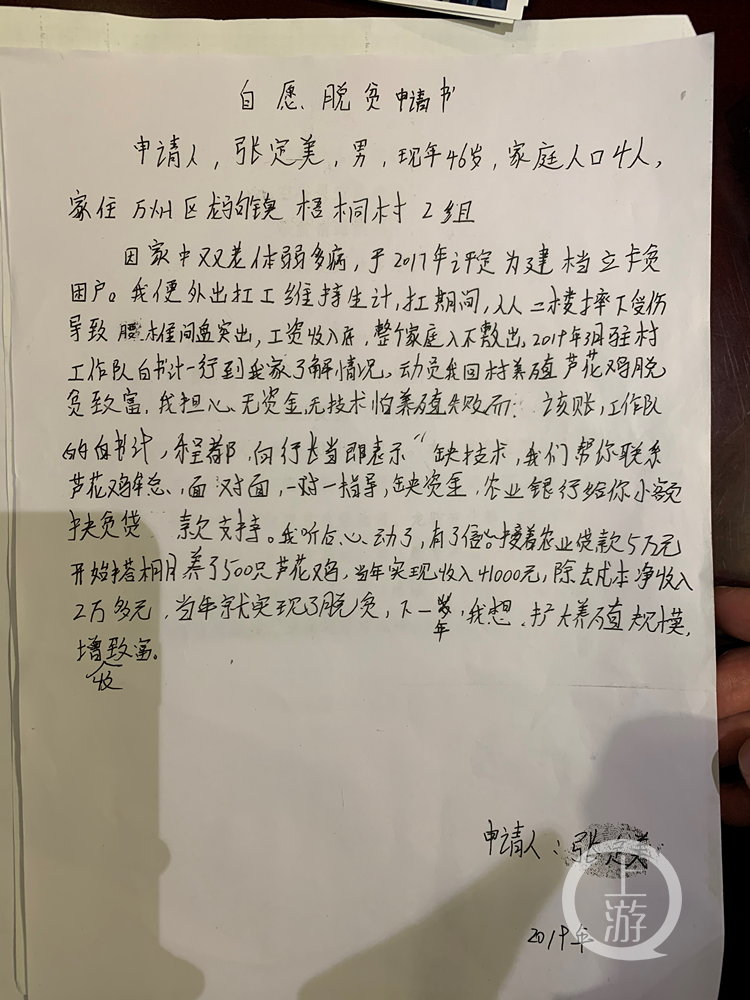 自愿脱贫申请书
申请人，张定美，男，现年46岁，家庭人口4人，
家住万州区龙驹镇梧桐村2组
因家中双老体弱多病，于2017年评定为建档立卡贫
困户。我便外出打工维持生计，打期间，从二楼摔下受伤
导致腰椎间盘突出，工资收入底，整个家庭入不敷出，2019年3月驻村
工作队白书计一行到我家了解情况，动员我回村养殖芦花鸡脱
贫致富，我担心无资金，无技术怕养殖失败而 该账，工作队
的白书计，程都 向行长当即表示“缺技术，我们帮你联系
芦花鸡牟总，面对面，一对一指导，缺资金，农业银行给你小额
扶贫贷 款支持。我听后心动了，有了信心。接着农业贷款5万元
开始搭棚月养了500只芦花鸡，当年实现收入41000元，除去成本净收入
2万多元，当年就实现了脱贫，下一年，我想，扩大养殖规模，
增收致富。
申请人：张定美
2019年
上游